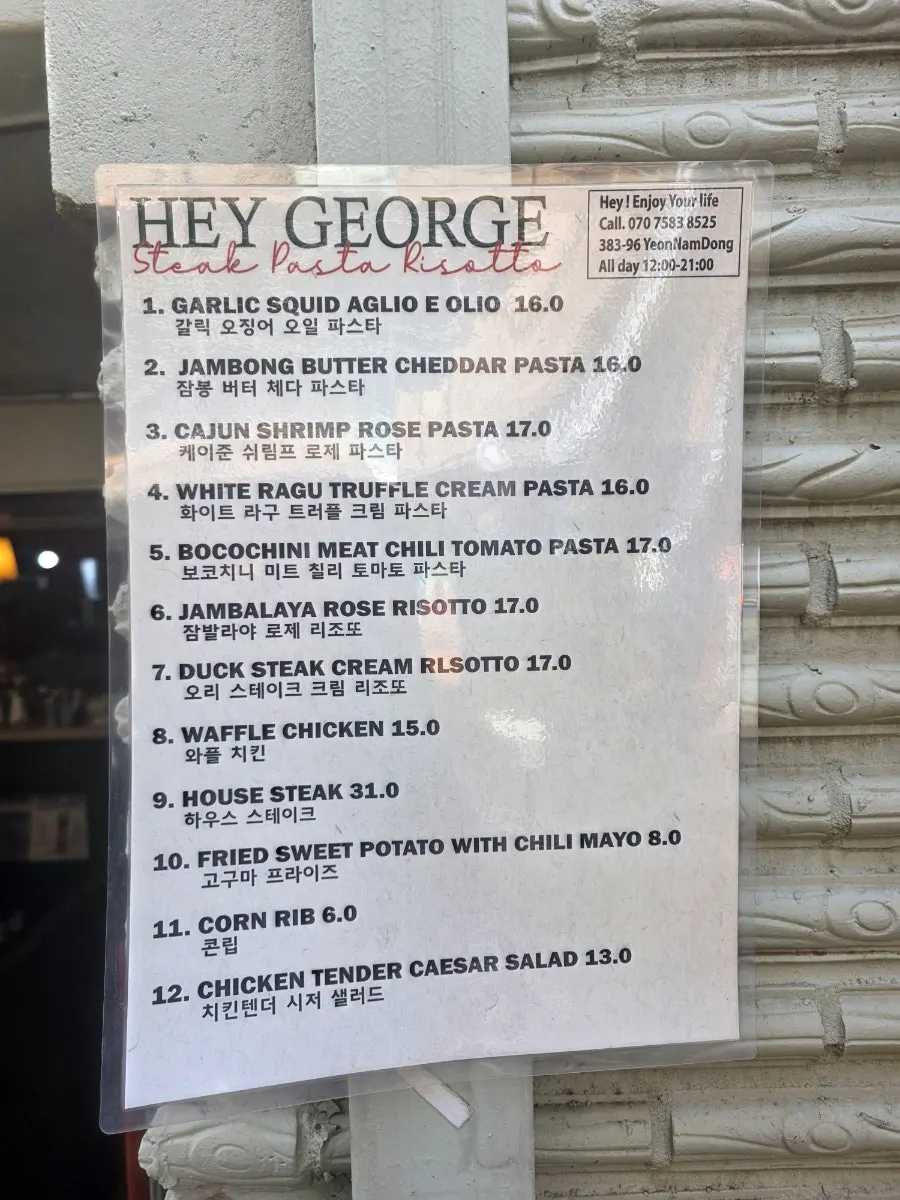 HEY GEORGE
Steak Pasta Risotto
Hey ! Enjoy Your life
Call. 070 7583 8525
383-96 YeonNamDong
All day 12:00-21:00
1. GARLIC SQUID AGLIO E OLIO 16.0
갈릭 오징어 오일 파스타
2. JAMBONG BUTTER CHEDDAR PASTA 16.0
잠봉 버터 체다 파스타
3. CAJUN SHRIMP ROSE PASTA 17.0
케이준 쉬림프 로제 파스타
4. WHITE RAGU TRUFFLE CREAM PASTA 16.0
화이트 라구 트러플 크림 파스타
5. BOCOCHINI MEAT CHILI TOMATO PASTA 17.0
보코치니 미트 칠리 토마토 파스타
6. JAMBALAYA ROSE RISOTTO 17.0
잠발라야 로제 리조또
7. DUCK STEAK CREAM RLSOTTO 17.0
오리 스테이크 크림 리조또
8. WAFFLE CHICKEN 15.0
와플 치킨
9. HOUSE STEAK 31.0
하우스 스테이크
10. FRIED SWEET POTATO WITH CHILI MAYO 8.0
고구마 프라이즈
11. CORN RIB 6.0
콘립
12. CHICKEN TENDER CAESAR SALAD 13.0
치킨텐더 시저 샐러드